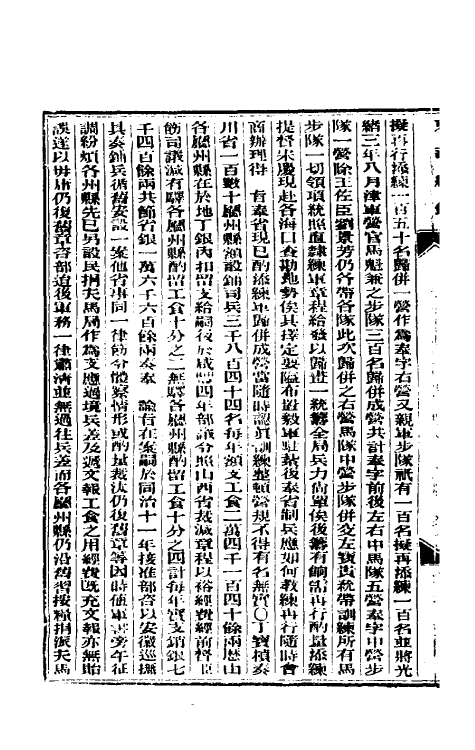 擬再行添練一百五十名歸併一營作爲奉字右營又親軍步隊祇有一百名擬再添練一百名並將光
緒三年八月津軍營官馬魁兼之步隊三百名歸併成營共計奉字前後左右中馬隊五營奉字中營步
隊一營除王佐臣劉景芳仍各帶各隊此次歸併之右營馬隊中營步隊併交左寶貴統帶訓練所有馬
步隊一切領項統照直隸練軍章程給發以歸畫一統籌全局兵力尚單俟後籌有餉需再行酌量添練
提督宋慶現赴各海口查勘地勢俟其擇定要隘布置毅軍駐紮後奉省制兵應如何教練再行隨時會
商辦理得 旨奉省現已酌添練軍歸併成營當隨時認眞訓練整頓營規不得有名無實〇丁寶楨奏
川省一百數十廳州縣額設鋪司兵三千八百四十四名每年額支工食二萬四千一百四十餘兩歷由
各廳州縣在於地丁銀內扣留支給嗣後於咸豐四年部議分照山西省裁減章程以裕經費經前督臣
飭司議減有驛各廳州縣酌留工食十分之二無驛各廳州縣酌留工食十分之四計每年實支銷銀七
千四百餘兩共節省銀一萬六千六百餘兩奏奉 諭旨在案嗣於同治十一年接准部咨以安徽巡撫
具奏鋪兵循舊安設一案他省事同一律飭分體察情形或酌量裁汰仍復舊章等因時値軍書旁午征
調紛煩各州縣先已另設民捐夫馬局作爲支應過境兵差及遞文報工食之用經費既充文報亦無貽
誤遂以毋庸仍復舊章咨部迨後軍務一律肅清並無過往兵差而各廳州縣仍沿舊習按糧捐派夫馬